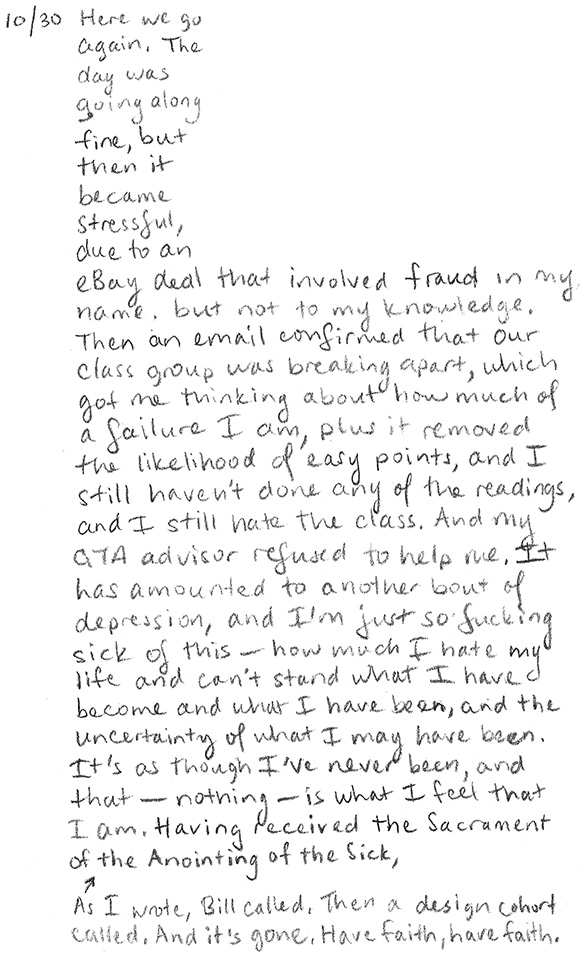 10/30 Here we go
again. The
day was
going along
fine, but
then it
became
stressful,
due to an
eBay deal that involved fraud in my
name. but not to my knowledge.
Then an email confirmed that our
class group was breaking apart, which
got me thinking about how much of
a failure I am, plus it removed
the likelihood of easy points, and I
still haven't done any of the readings,
and I still hate the class. And my
GTA advisor refused to help me. It
has amounted to another bout of
depression, and I'm just so fucking
sick of this – how much I hate my
life and can't stand what I have
become and what I have been, and the
uncertainty of what I may have been.
It's as though I've never been, and
that – nothing – is what I feel that
I am. Having received the Sacrament
of the Anointing of the Sick,
As I wrote, Bill called. Then a design cohort
called. And it's gone. Have faith, have faith.